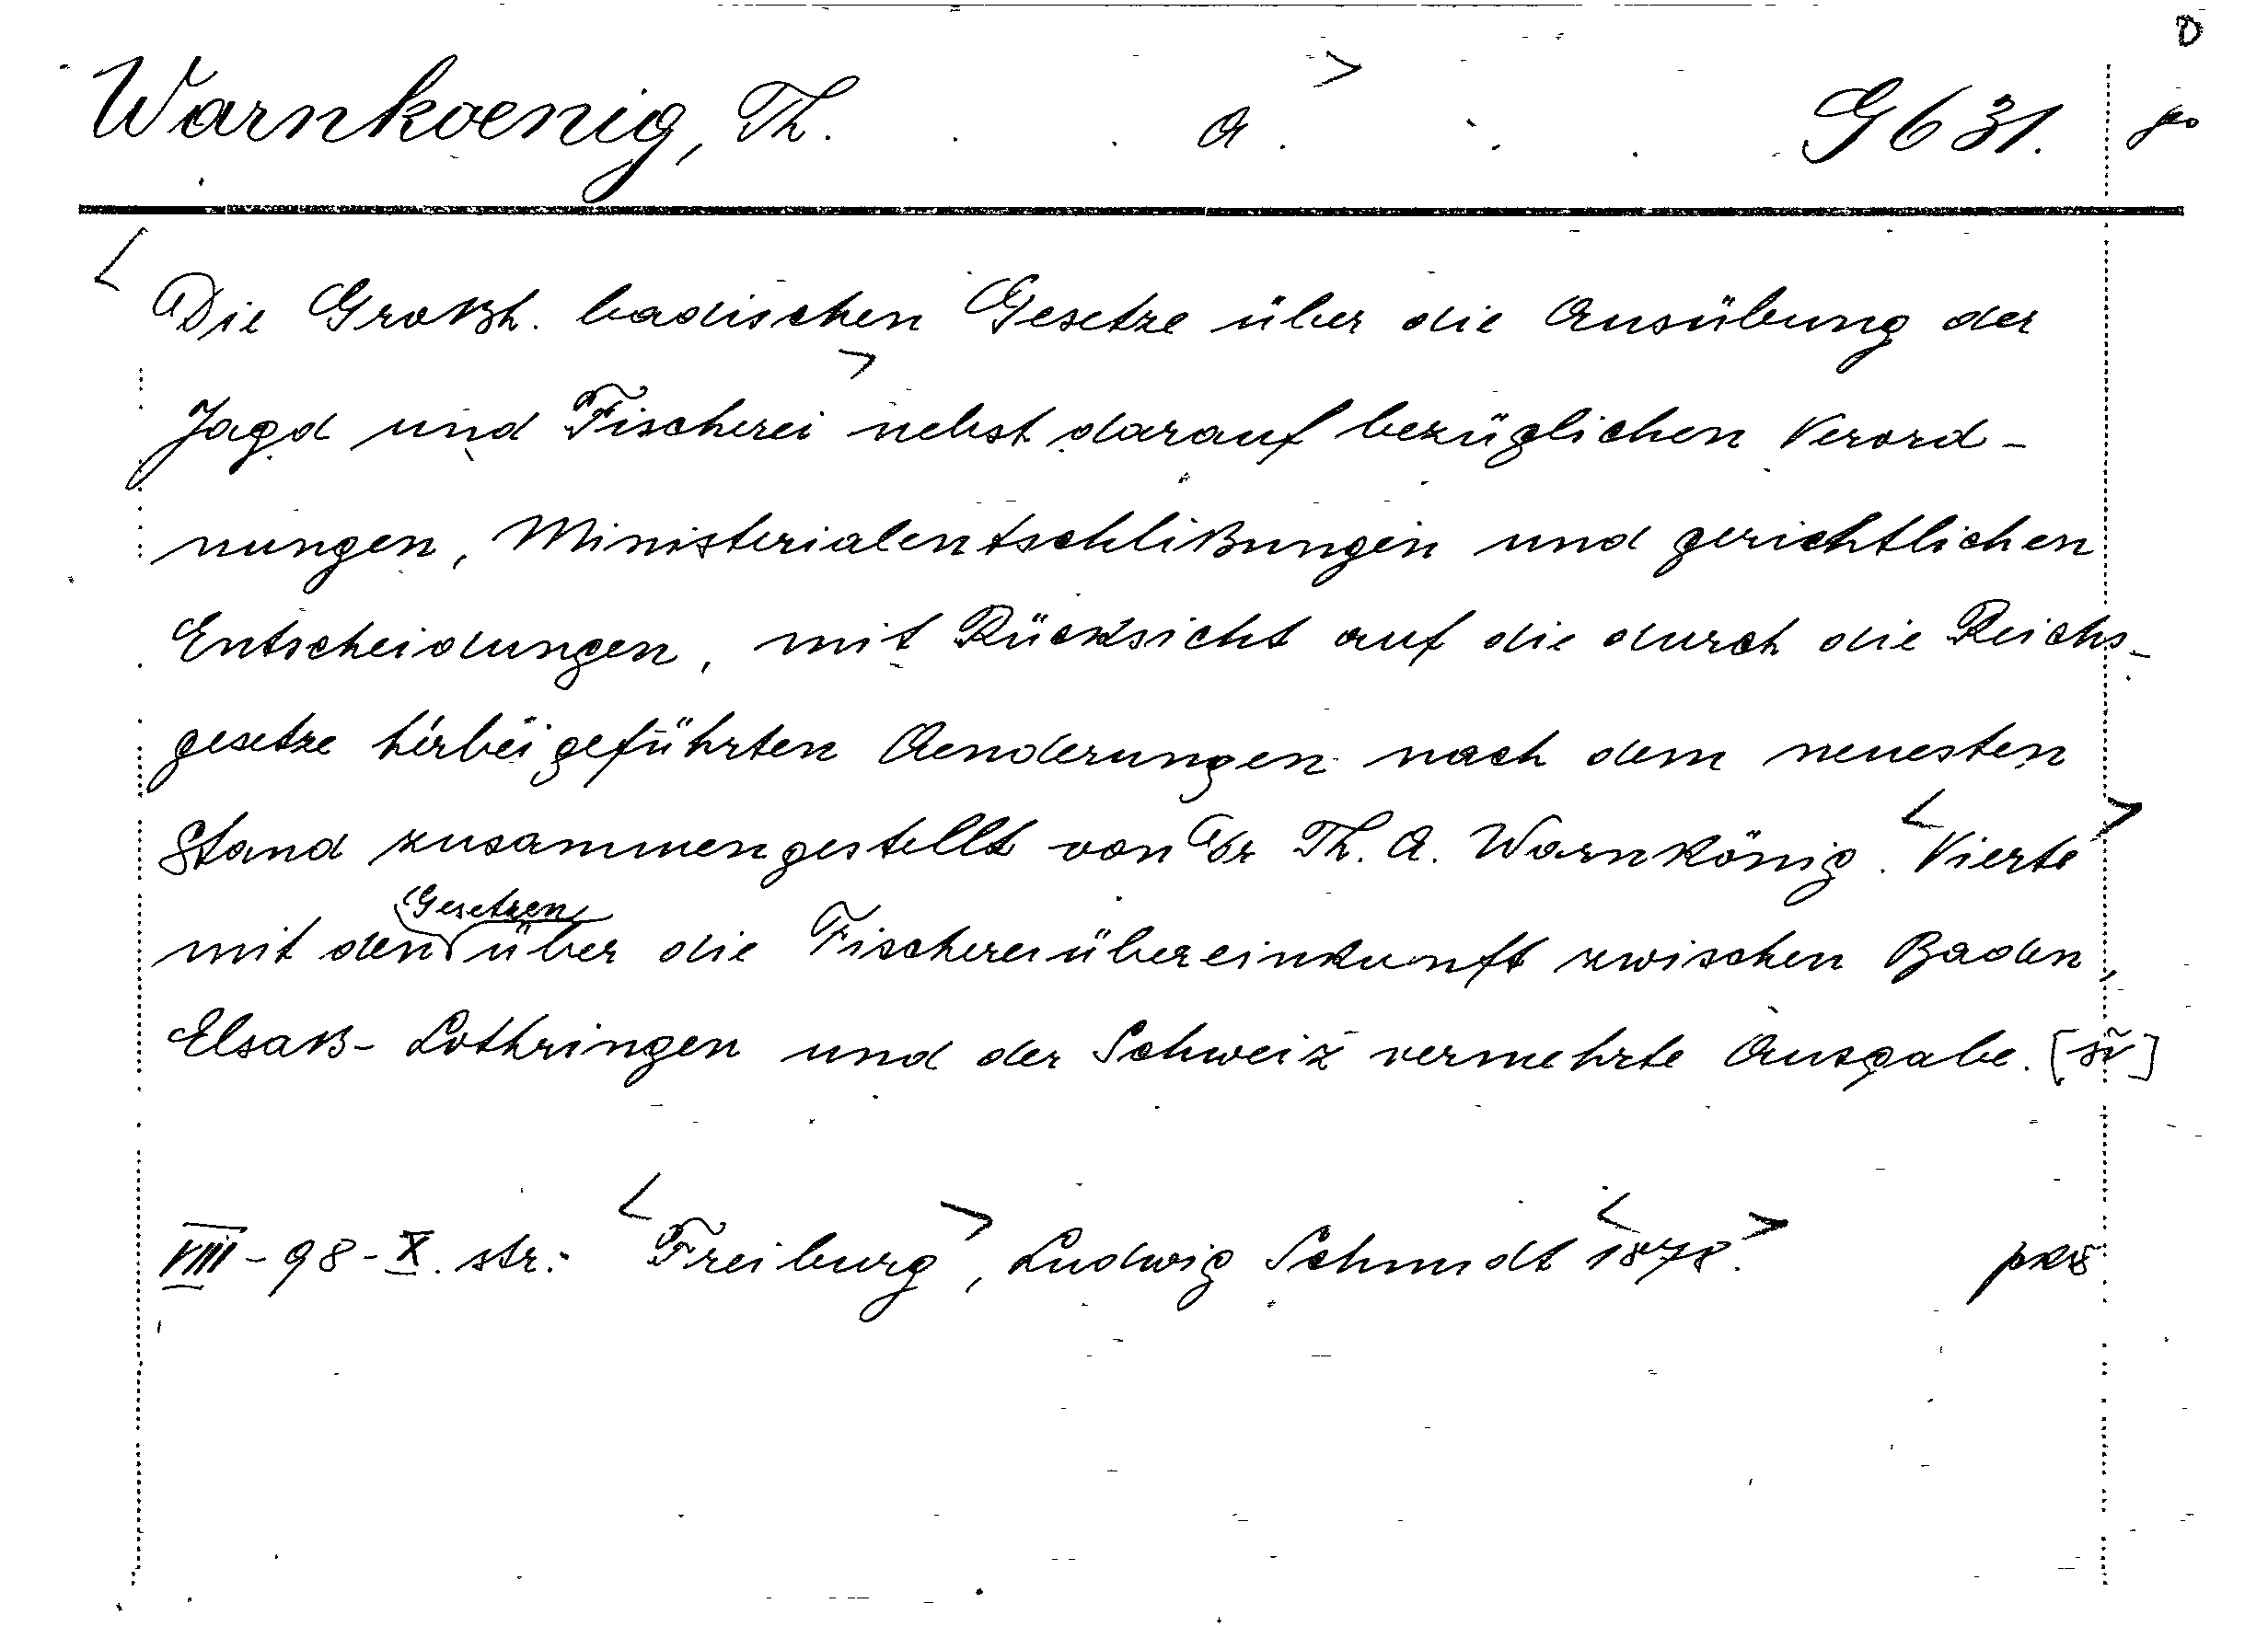 D
Warnkoenig, Th. a. > G 631.
< Die Großh. badischen Gesetze über die Ausübung der
Jagd und Fischerei > nebst darauf bezüglichen Verord-
nungen, Ministerialentschlißungen und gerichtlichen
Entscheidungen, mit Rücksicht auf die durch die Reichs-
gesetze herbeigeführten Aenderungen nach dem neuesten
Stand zusammengestellt von Dr Th. A. Warnkönig. < Vierte >
mit den Gesetzen über die Fischereiübereinkunft zwischen Baden,
Elsaß-Lothringen und der Schweiz vermehrte Ausgabe.
VIII-98-X. str. < Freiburg >, Ludwig Schmidt < 1878. >